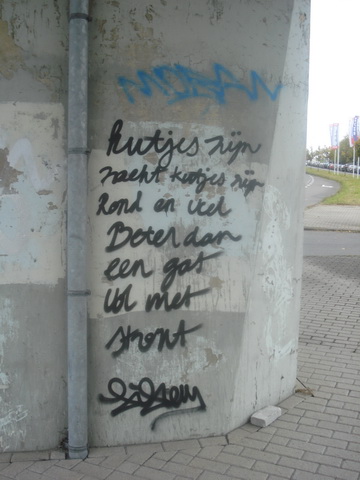 kutjes zijn
zacht kutjes zijn
Rond en
Beter dan
een gat
Vol met
stront